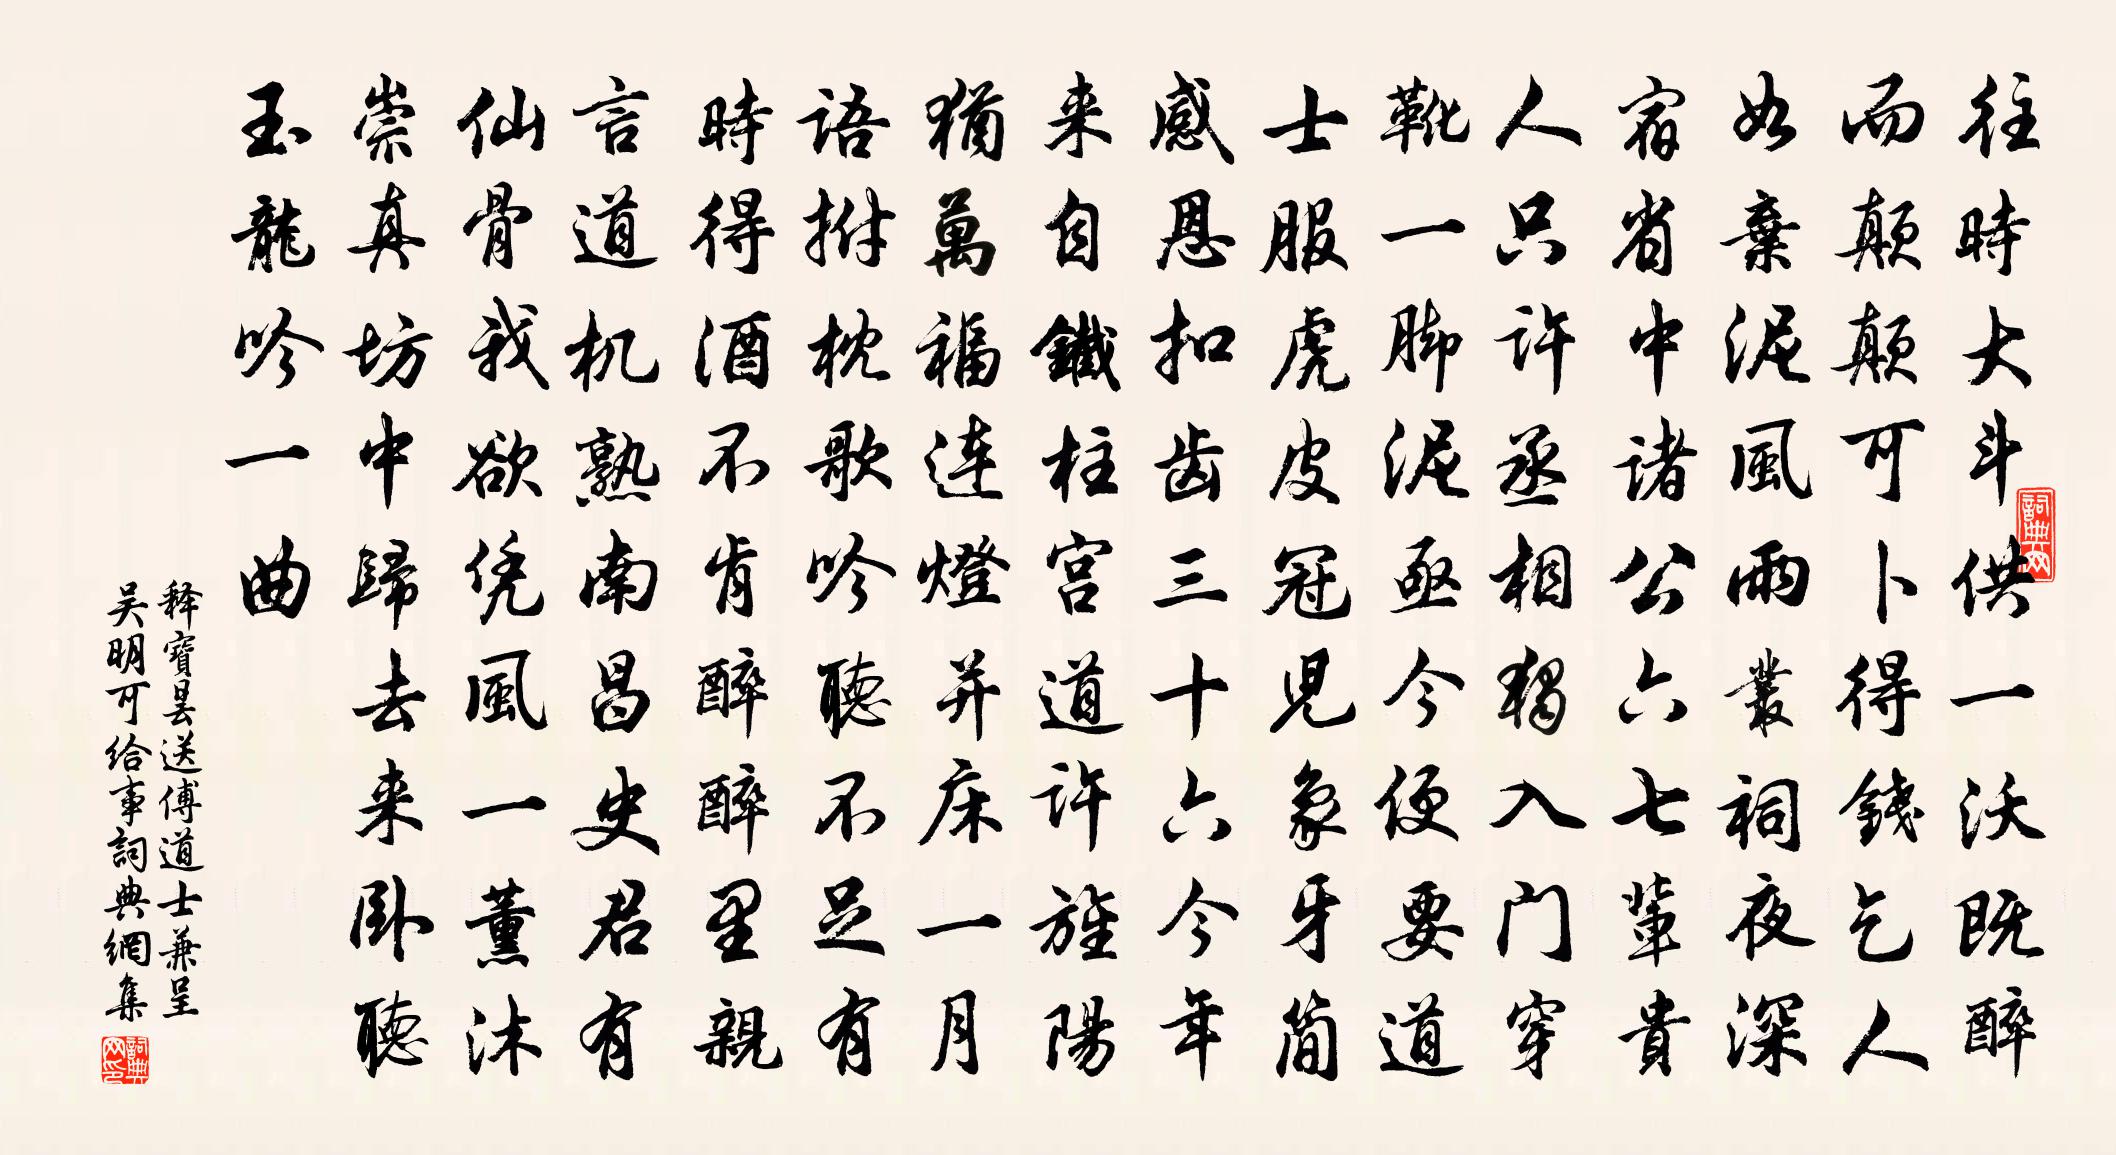 往時大斗供一沃既醉
而顛顛可卜得錢乞人
如棄泥風雨叢祠夜深
宿省中諸公六七輩貴
人只許丞相獨入门穿
靴一脚泥亟今便要道
士服虎皮冠児象牙简
感恩扣齿三十六今年
来自鐵柱宫道許旌陽
猶萬福連燈并床一月
語拊枕歌吟聽不足有
時得酒不肯醉醉里親
言道机熟南昌史君有
仙骨我欲凭風一薰沐
崇真坊中歸去来卧聽
玉龍吟一曲
释寶曇送傅道士兼呈
吴明可给事詞典網集
詞典网
詞典网印